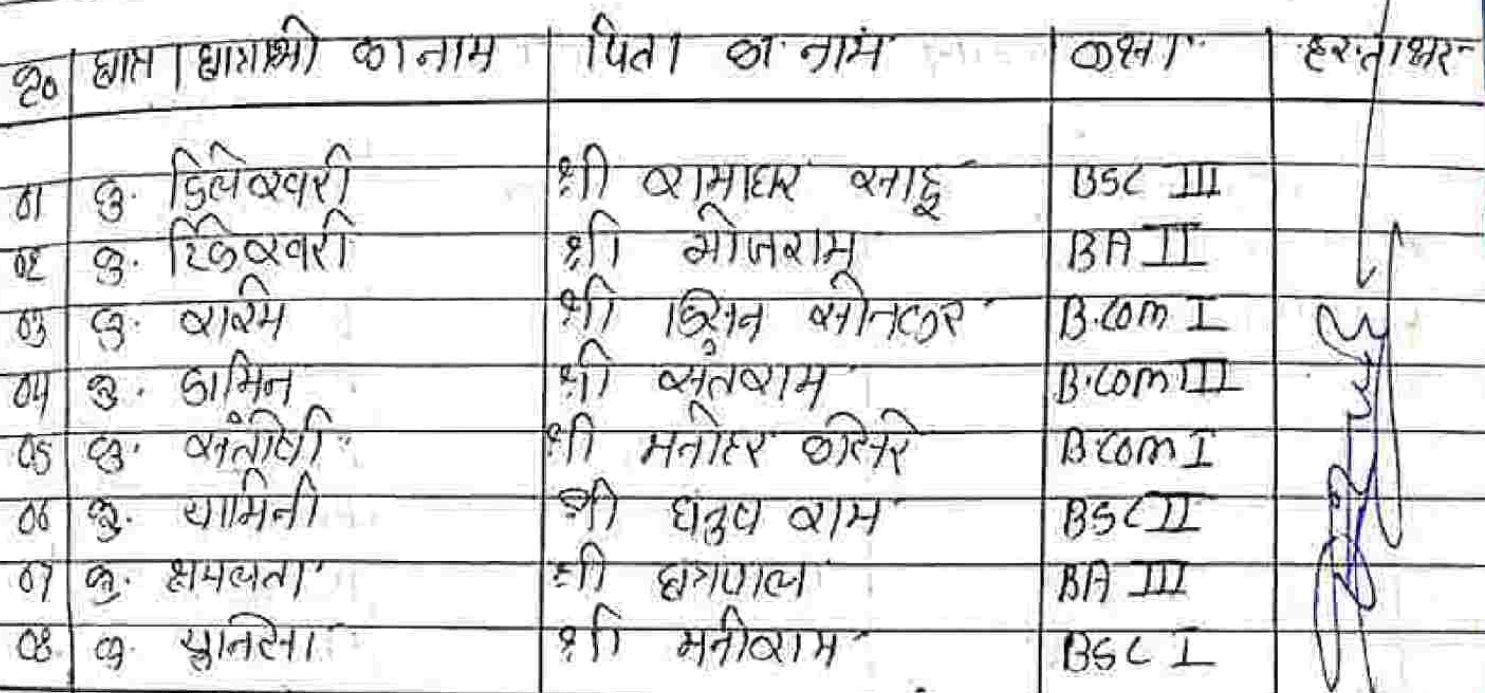 क्र० छात्र / छात्राओं का नाम पिता का नाम कक्षा हस्ताक्षर
01 कु. डिलेश्वरी श्री रामाधर साहू BSC III
02 कु. टिकेश्वरी श्री भोजराम BA II
03 कु. रश्मि श्री सोनकर B.COM I
04 कु. डामिन श्री संतराम B.COM III
05 कु. संतोषी श्री मनोहर कोसरे B.COM I
06 कु. यामिनी श्री धनुष राम BSC II
07 कु. क्षमलता श्री छत्रपाल BA III
08 कु. श्री मनीराम BSC I